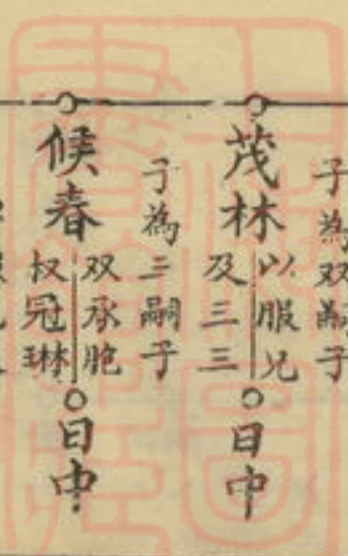 子為双嗣子
茂林
以服兄
及三三
日中
子為三嗣子
候春
双承胞
权冠琳
日中